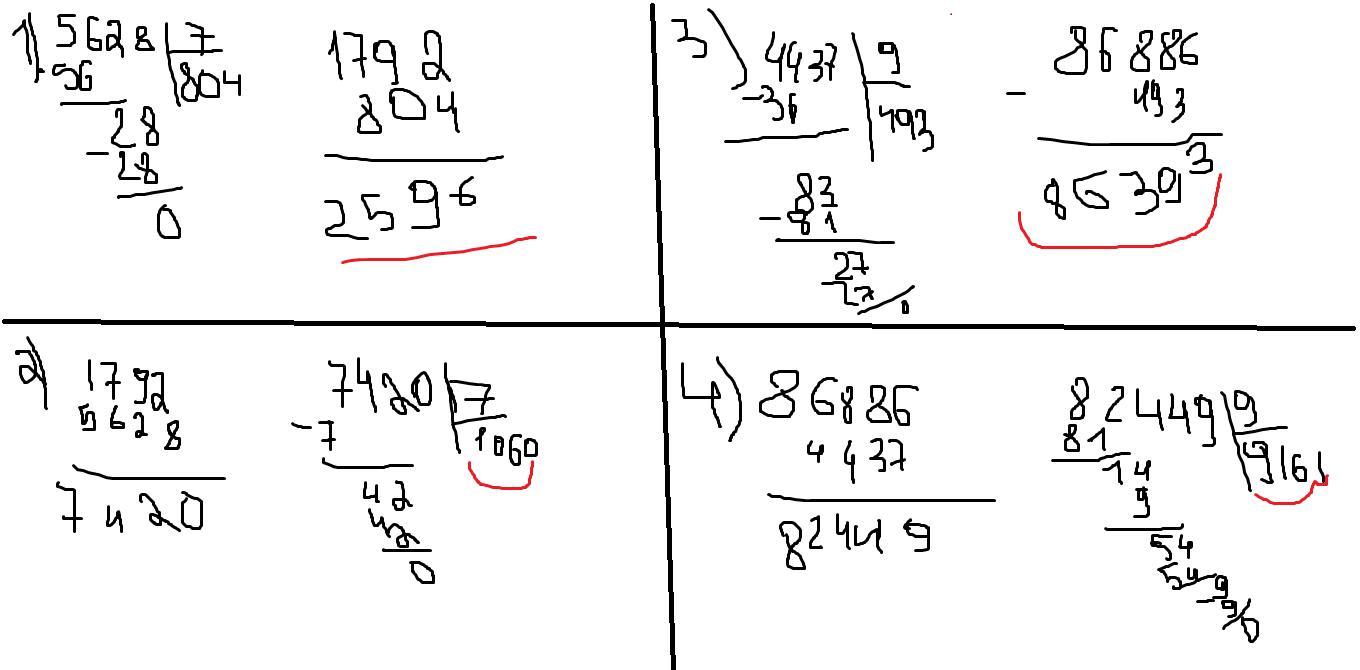 1) 5628 7
56 804
28
- 28
0
1792
804
2596
2) 1792
5628
7420
7420 7
- 7 1060
42
42
0
3) 4437 9
- 36 493
83
- 81
27
27
0
86886
- 493
86393
4) 86886
4437
82449
82449 9
81 9161
14
9
54
54
9
- 9
0